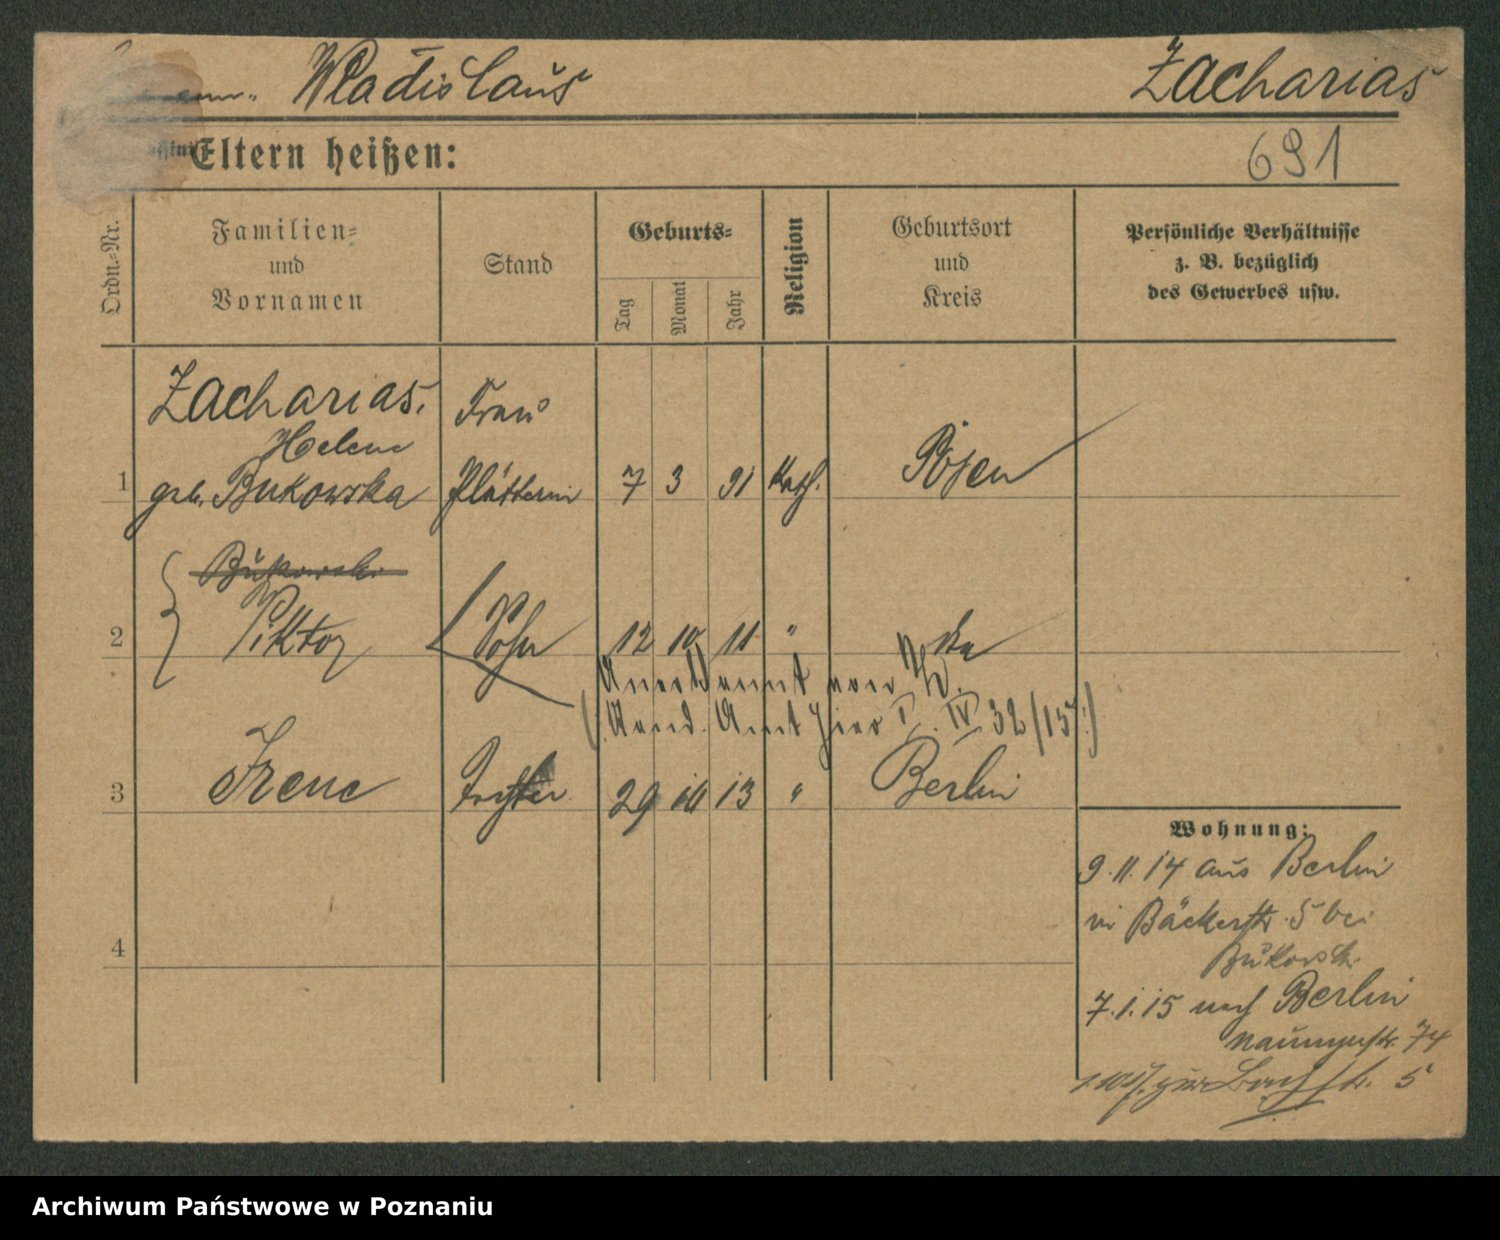 Wladislaus Zacharias
Eltern heißen: 691
Ordn.-Nr.
Familien-
und
Vornamen
Stand
Geburts-
Tag
Monat
Jahr
Religion
Geburtsort
und
Kreis
Persönliche Verhältnisse
z. B. bezüglich
des Gewerbes usw.
Zacharias. Frau
Helene
1 geb. Bukowska Plätterin 7 3 91 Kath. Posen
Bukowski
2 Viktor Sohn 12 10 11 "
Anerkannt vor
(Stand. Amt hier IV 32/15.)
3 Irene Tochter 29 10 13 " Berlin
Wohnung:
9.11.14 aus Berlin
in Bäckerstr. 5 bei
Bukowski
7.1.15 nach Berlin
Naunynstr. 74
4
5
Archiwum Państwowe w Poznaniu